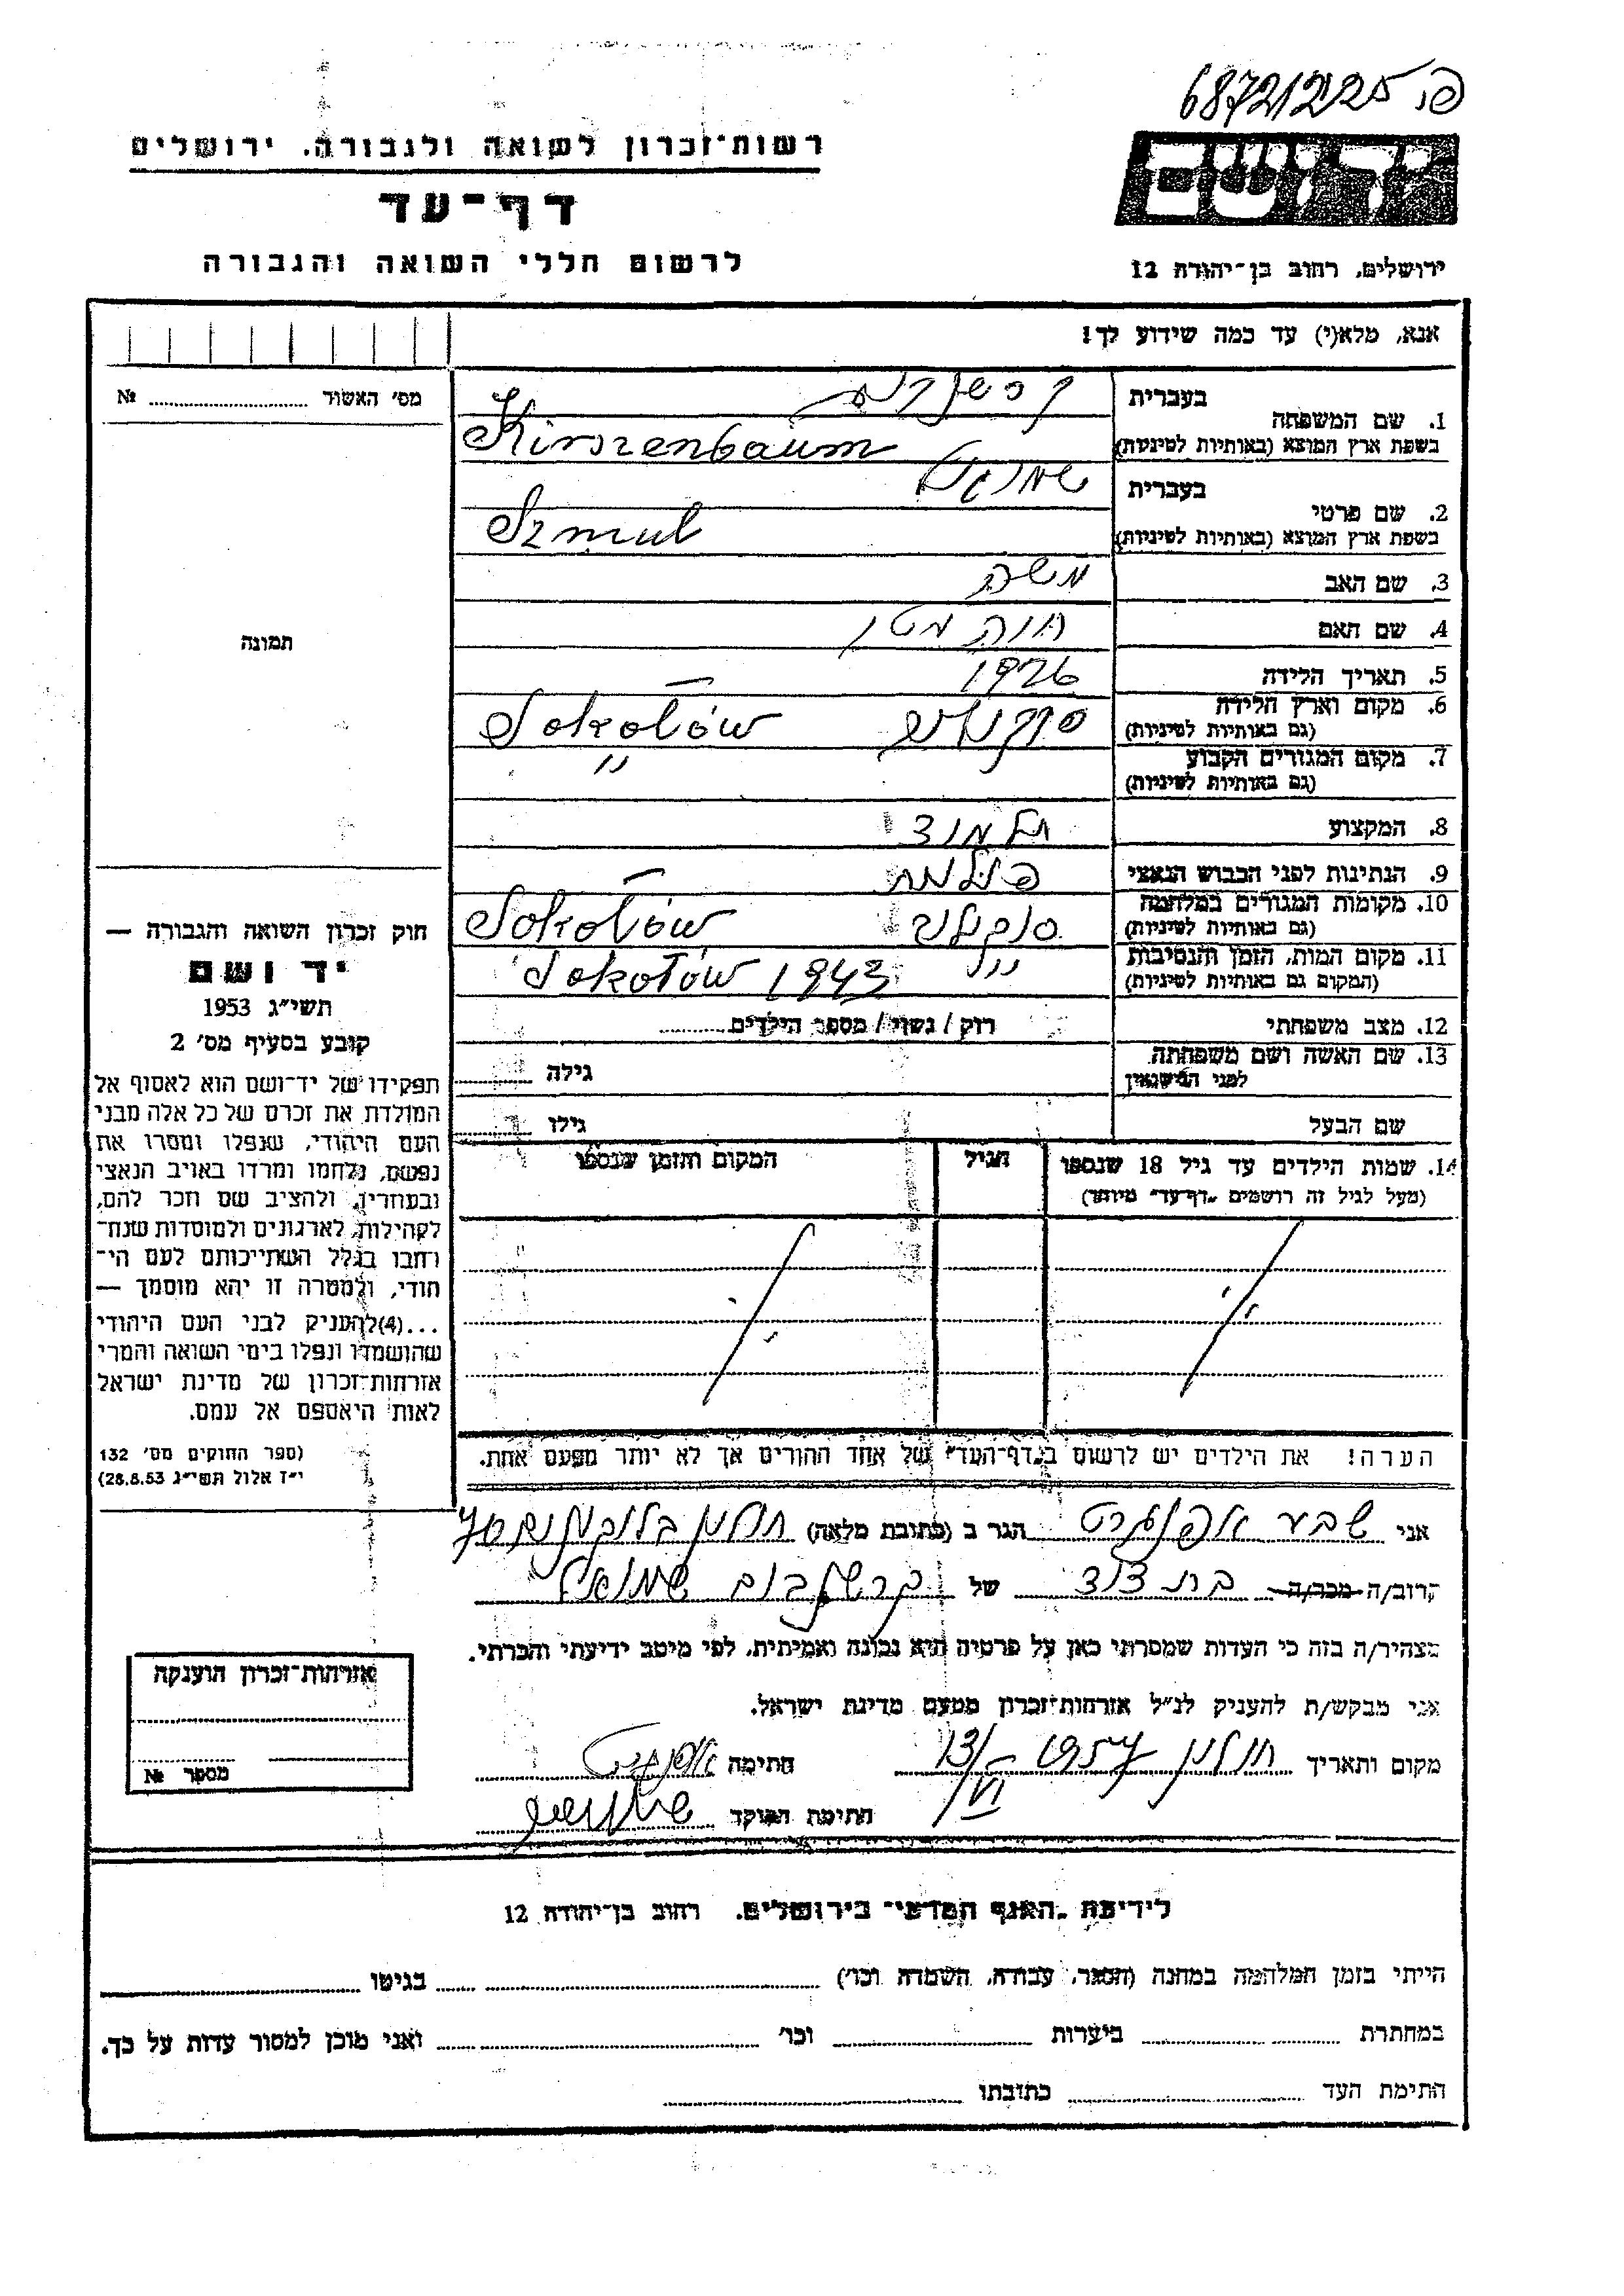 פ. 68721225
רשות־זכרון לשואה ולגבורה, ירושלים
יד ושם
דף־עד
לרשום חללי השואה והגבורה
ירושלים, רחוב בן־יהודה 12
אנא, מלא(י) עד כמה שידוע לך!
מס׳ האשור № 
תמונה
1. שם המשפחה
בעברית
בשפת ארץ המוצא (באותיות לטיניות) Kirszenbaum
2. שם פרטי
בעברית
בשפת ארץ המוצא (באותיות לטיניות) Szmul
3. שם האב משה
4. שם האם חוה
5. תאריך הלידה 1926
6. מקום וארץ הלידה Sokołów
(גם באותיות לטיניות)
7. מקום המגורים הקבוע "
(גם באותיות לטיניות)
8. המקצוע תלמיד
9. הנתינות לפני הכבוש הנאצי פולנית
10. מקומות המגורים במלחמה סוקולוב Sokołów
(גם באותיות לטיניות)
11. מקום המות, הזמן והנסיבות Sokołów 1943
(המקום גם באותיות לטיניות)
12. מצב משפחתי רוק / נשוי / מספר הילדים
13. שם האשה ושם משפחתה גילה
לפני הנישואין
שם הבעל גילו
14. שמות הילדים עד גיל 18 שנספו הגיל המקום והזמן שנספו
(מעל לגיל זה רושמים „דף־עד״ מיוחד)
הערה! את הילדים יש לרשום ב„דף־העד״ של אחד ההורים אך לא יותר מפעם אחת.
חוק זכרון השואה והגבורה —
יד ושם
תשי״ג 1953
קובע בסעיף מס׳ 2
תפקידו של יד־ושם הוא לאסוף אל
המולדת את זכרם של כל אלה מבני
העם היהודי, שנפלו ומסרו את
נפשם, נלחמו ומרדו באויב הנאצי
ובעוזריו, ולהציב שם וזכר להם,
לקהילות, לארגונים ולמוסדות שנח־
רחבו בגלל השתייכותם לעם הי־
הודי, ולמטרה זו יהא מוסמך —
...(4)להעניק לבני העם היהודי
שהושמדו ונפלו בימי השואה והמרי
אזרחות־זכרון של מדינת ישראל
לאות היאספם אל עמם.
(ספר החוקים מס׳ 132
י״ז אלול תשי״ג 28.8.53)
אני שבע הגר ב (כתובת מלאה) חולון
קרוב/ה מכר/ה בת דוד של קרשנבוים שמואל
מצהיר/ה בזה כי העדות שמסרתי כאן על פרטיה היא נכונה ואמיתית, לפי מיטב ידיעתי והכרתי.
אני מבקש/ת להעניק לנ״ל אזרחות־זכרון מטעם מדינת ישראל.
מקום ותאריך חולון 1957 13/VI חתימה
חתימת הפוקד
אזרחות־זכרון הוענקה
מספר №
לידיעת „האגף המדעי״ בירושלים, רחוב בן־יהודה 12
הייתי בזמן המלחמה במחנה (הסגר, עבודה, השמדה וכו׳) בגיטו
במחתרת ביערות וכו׳ ואני מוכן למסור עדות על כך.
חתימת העד כתובתו